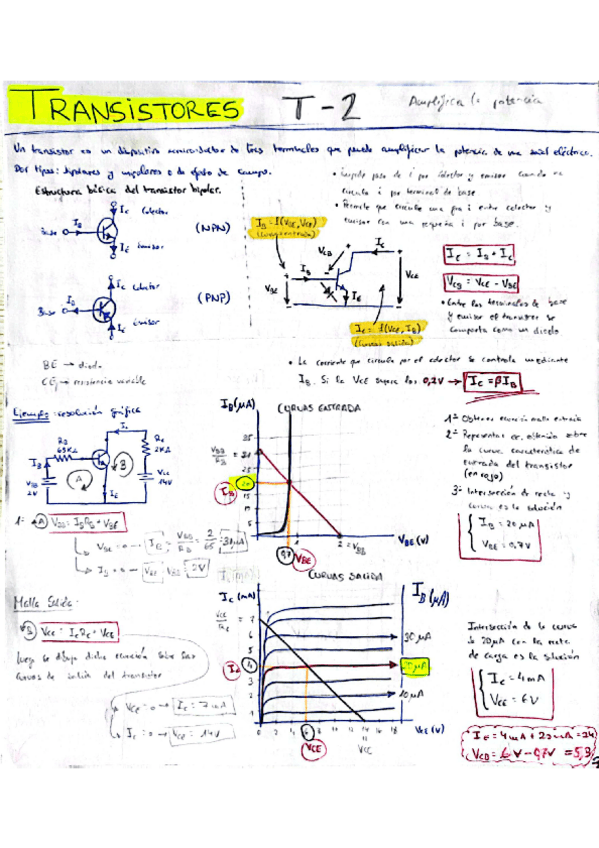 TRANSISTORES T-2 Amplifica la potencia
Un transistor es un dispositivo semiconductor de tres terminales que puede amplificar la potencia de una señal eléctrica.
Dos tipos: bipolares y unipolares o de efecto de campo.
Estructura básica del transistor bipolar.
• Impide paso de i por colector y emisor cuando no
circula i por terminal de base
• Permite que circule una i entre colector y
emisor con una pequeña i por base.
IC Colector
Base IB (NPN)
IE Emisor
IC Colector
Base IB (PNP)
IE Emisor
IB = f(VBE, VCB)
(curvas entrada)
VCB IC
IB
VBE VCE
IE
IC = f(VCE, IB)
(curvas salida)
IE = IB + IC
VCB = VCE - VBE
• Entre los terminales de base
y emisor el transistor se
comporta como un diodo
BE → diodo
CE → resistencia variable
• La corriente que circula por el colector se controla mediante
IB. Si la VCE supera los 0,2V → IC = βIB
Ejemplo: resolución gráfica
IC
RB
65KΩ
RC
2KΩ
IB
A B
VBB
2V
VCC
14V
IE
1º A VBB = IBRB + VBE
VBE = 0 → IB = VBB/RB = 2/65 = 31μA
IB = 0 → VBE = VBB = 2V
IB (μA) CURVAS ENTRADA
35
VBB/RB
25
IB 20
15
5
0,7 1 2 = VBB VBE (V)
VBE
1º Obtener ecuación malla entrada
2º Representar ec. obtenida sobre
la curva característica de
entrada del transistor
(en rojo)
3º Intersección de recta y
curva es la solución
IB = 20 μA
VBE = 0,7V
Malla Salida.
B VCC = ICRC + VCE
luego se dibuja dicha ecuación sobre las
curvas de salida del transistor
VCE = 0 → IC = 7mA
IC = 0 → VCE = 14V
CURVAS SALIDA
IC (mA) IB (μA)
VCC/RC = 7
6
5
30 μA
IC 4 20 μA
3
2 10 μA
1
0 2 4 6 8 10 12 14 16 18 VCE (V)
VCE VCC
Intersección de la curva
20μA con la recta
de carga es la solución
IC = 4mA
VCE = 6V
IE = 4mA + 20μA = 24
VCB = 6V - 0,7V = 5,3